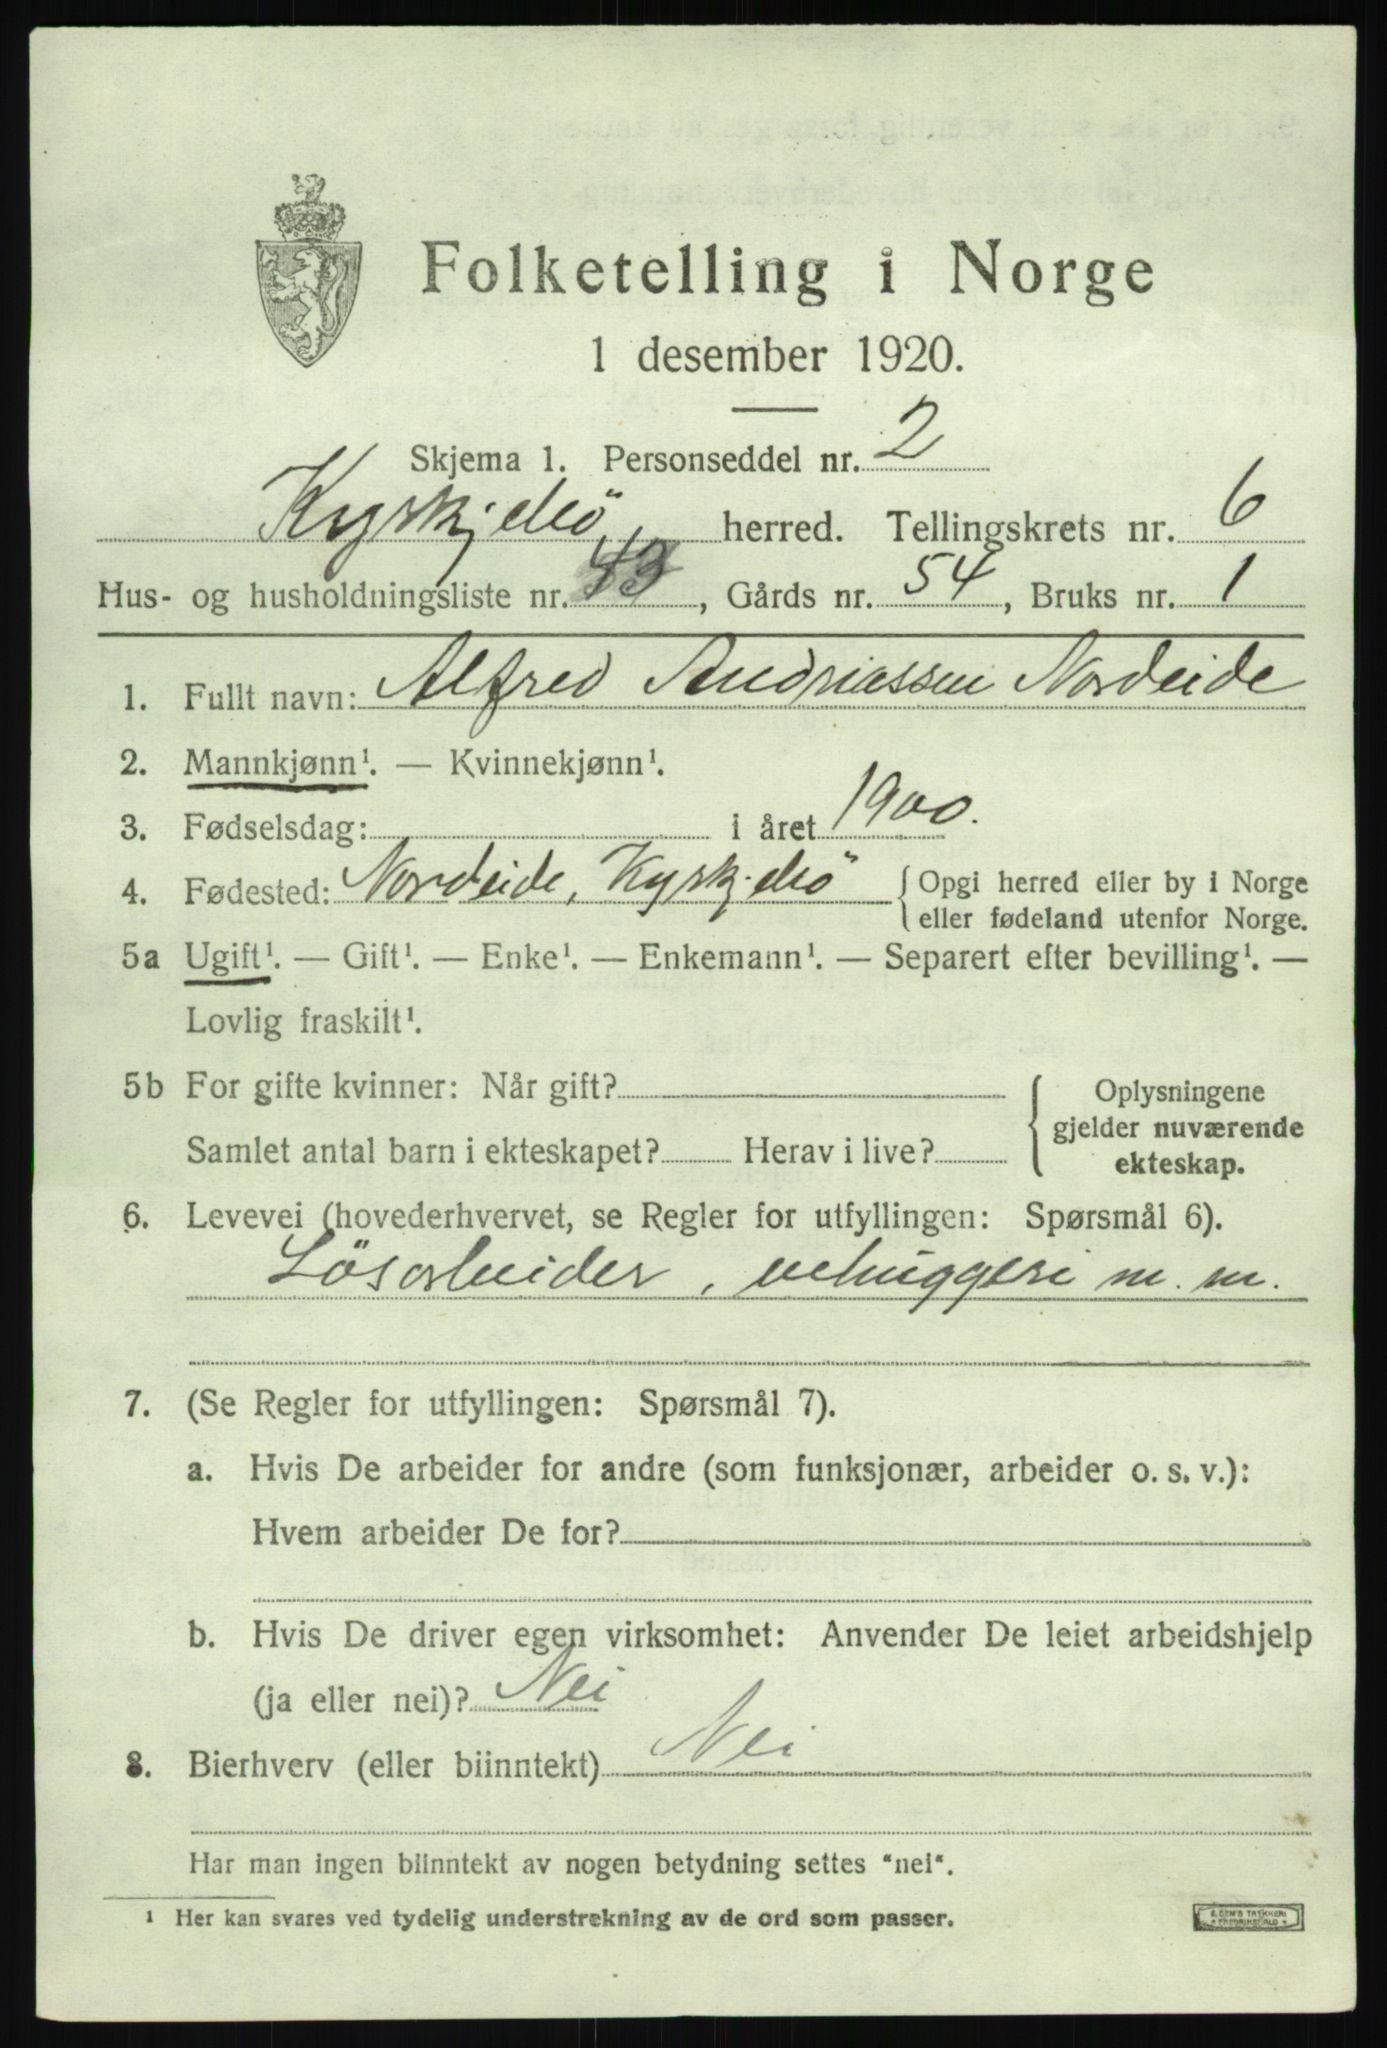 Folketelling i Norge
1 desember 1920.
Skjema 1. Personseddel nr. 2
Kyrkjebö herred. Tellingskrets nr. 6
Hus- og husholdningsliste nr. 43, Gårds nr. 54, Bruks nr. 1
1. Fullt navn: Alfred Andriassen Nordeide
2. Mannkjønn¹. — Kvinnekjønn¹.
3. Fødselsdag: i året 1900.
4. Fødested: Nordeide, Kyrkjebö {Opgi herred eller by i Norge
eller fødeland utenfor Norge.
5a Ugift¹. — Gift¹. — Enke¹. — Enkemann¹. — Separert efter bevilling¹. —
Lovlig fraskilt¹.
5b For gifte kvinner: Når gift? { Oplysningene
gjelder nuværende
Samlet antal barn i ekteskapet? Herav i live? ekteskap.
6. Levevei (hovederhvervet, se Regler for utfyllingen: Spørsmål 6).
Lösarbeider, vehuggeri m. m.
7. (Se Regler for utfyllingen: Spørsmål 7).
a. Hvis De arbeider for andre (som funksjonær, arbeider o. s. v.):
Hvem arbeider De for?
b. Hvis De driver egen virksomhet: Anvender De leiet arbeidshjelp
(ja eller nei)? Nei
8. Bierhverv (eller biinntekt) Nei
Har man ingen biinntekt av nogen betydning settes "nei".
¹ Her kan svares ved tydelig understrekning av de ord som passer.